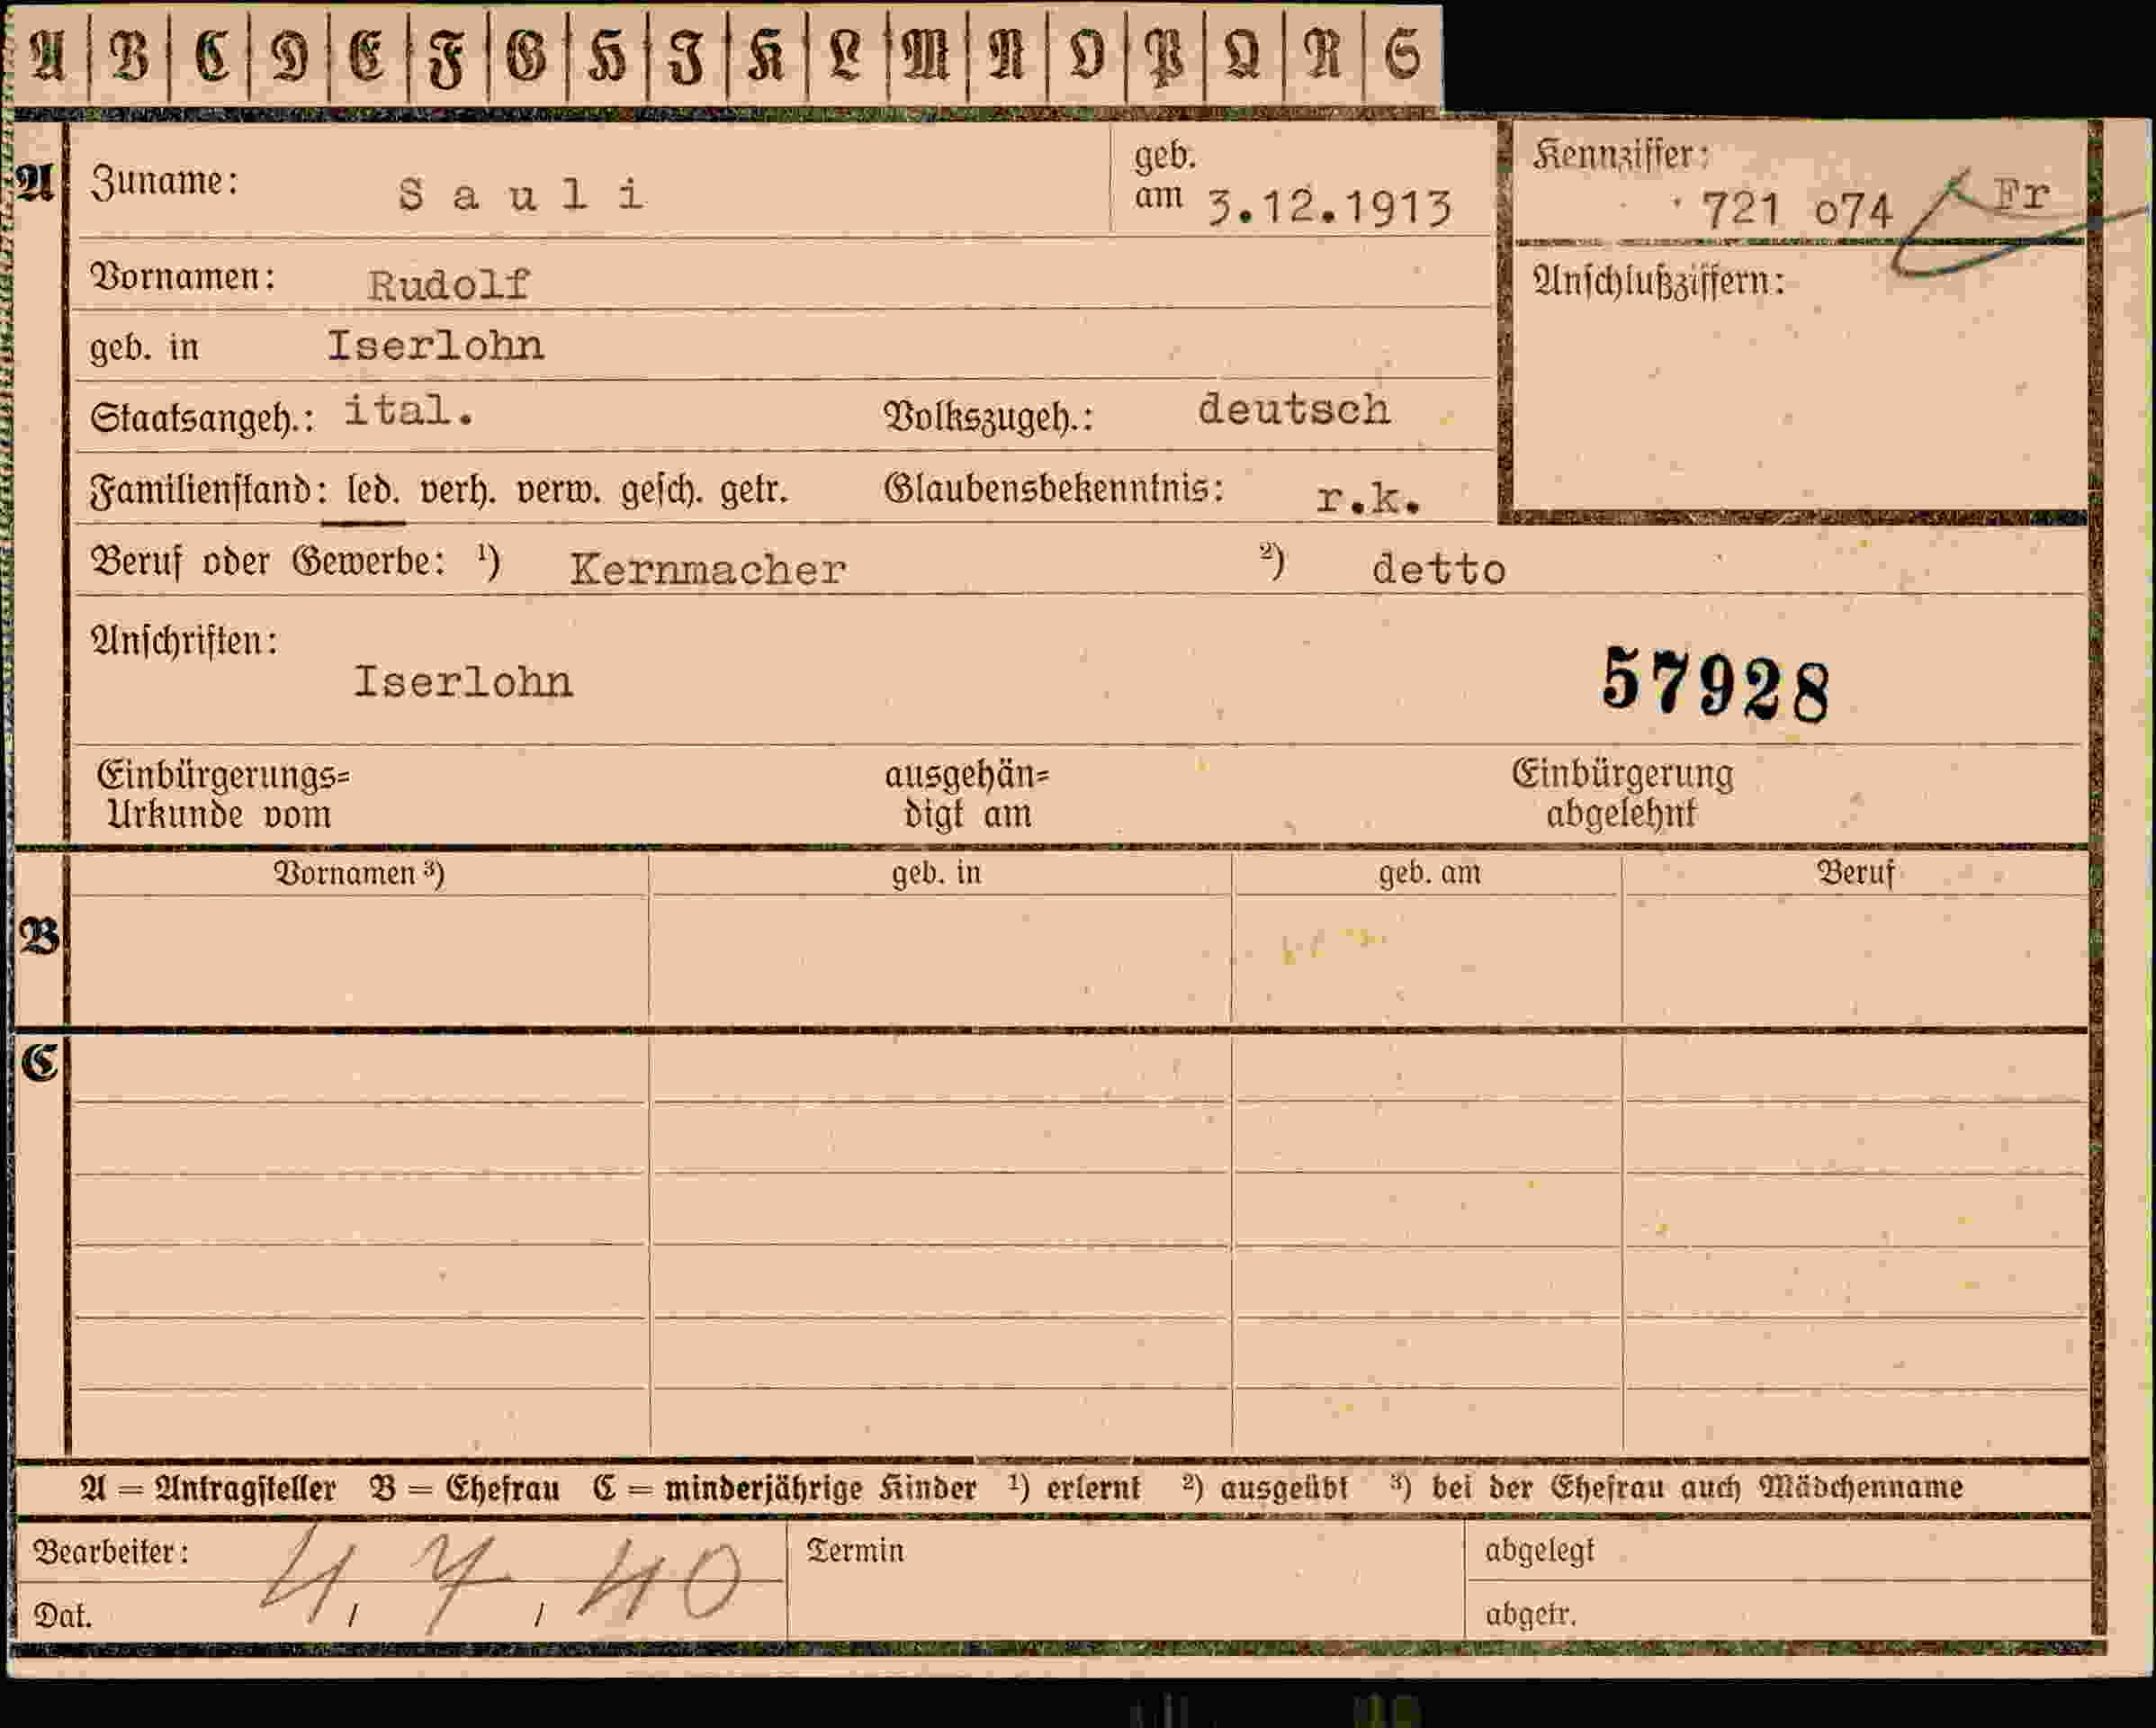 A B C D E F G H I K L M N O P Q R S
A Zuname: Sauli geb. am 3.12.1913 Kennziffer: 721 o74 Fr
Vornamen: Rudolf Anschlußziffern:
geb. in Iserlohn
Staatsangeh.: ital. Volkszugeh.: deutsch
Familienstand: led. verh. verw. gesch. getr. Glaubensbekenntnis: r.k.
Beruf oder Gewerbe: ¹) Kernmacher ²) detto
Anschriften:
Iserlohn 57928
Einbürgerungs= ausgehän= Einbürgerung
Urkunde vom digt am abgelehnt
Vornamen ³) geb. in geb. am Beruf
B
C
A = Antragsteller B = Ehefrau C = minderjährige Kinder ¹) erlernt ²) ausgeübt ³) bei der Ehefrau auch Mädchenname
Bearbeiter: Termin abgelegt
Dat. 4/7/40 abgetr.